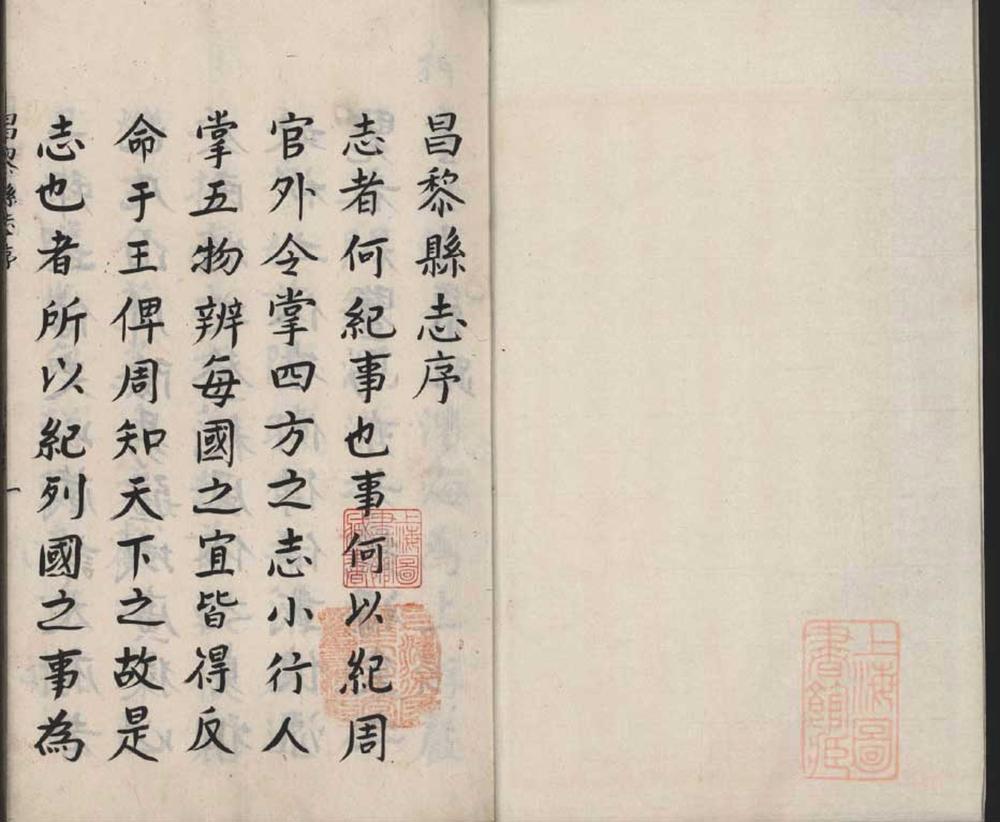 昌黎縣志序
志者何紀事也事何以紀周
官外令掌四方之志小行人
掌五物辨每國之宜皆得反
命于王俾周知天下之故是
志也者所以紀列國之事為
昌黎縣志序
一
上海圖
書館藏
上海圖
書館藏